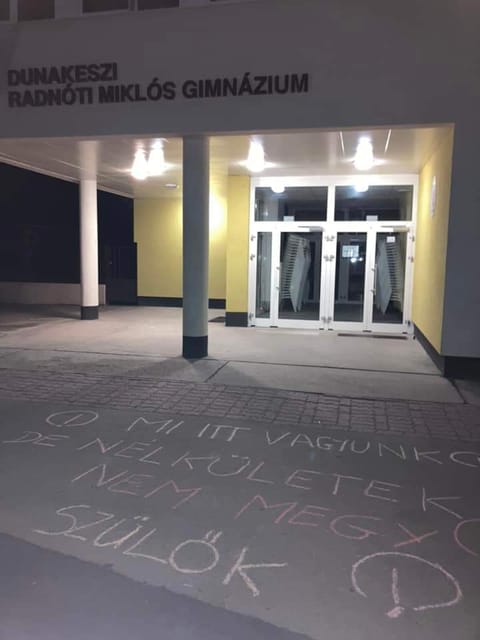 DUNAKESZI
RADNÓTI MIKLÓS GIMNÁZIUM
! MI ITT VAGYUNK
DE NÉLKÜLETEK
NEM MEGY
SZÜLŐK !